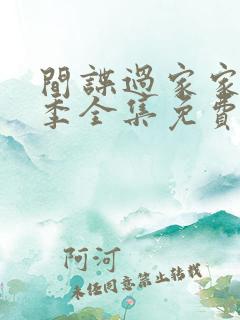 間諜過家家
季全集免費
阿河
未经同意禁止转载